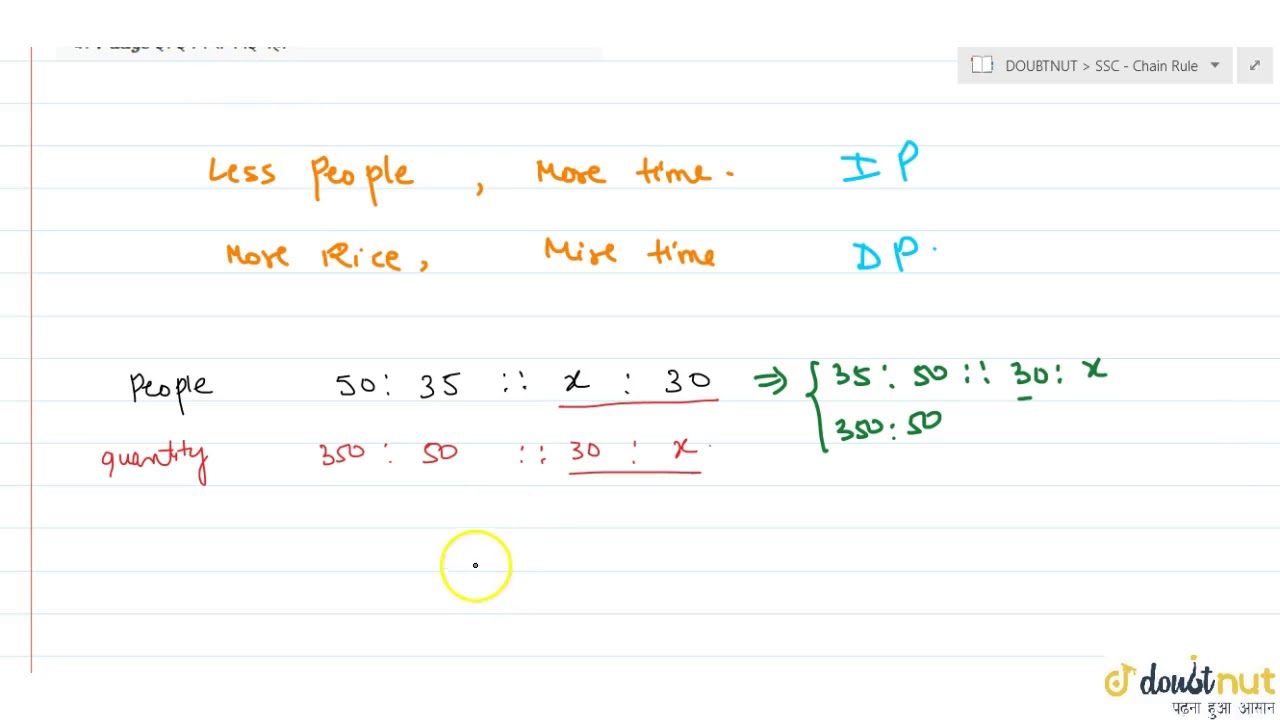 DOUBTNUT > SSC - Chain Rule
Less People, More time. IP
More Rice, Mire time DP.
People 50 : 35 :: x : 30 ⇒ { 35 : 50 :: 30 : x
350 : 50
quantity 350 : 50 :: 30 : x
doubtnut
पढ़ना हुआ आसान